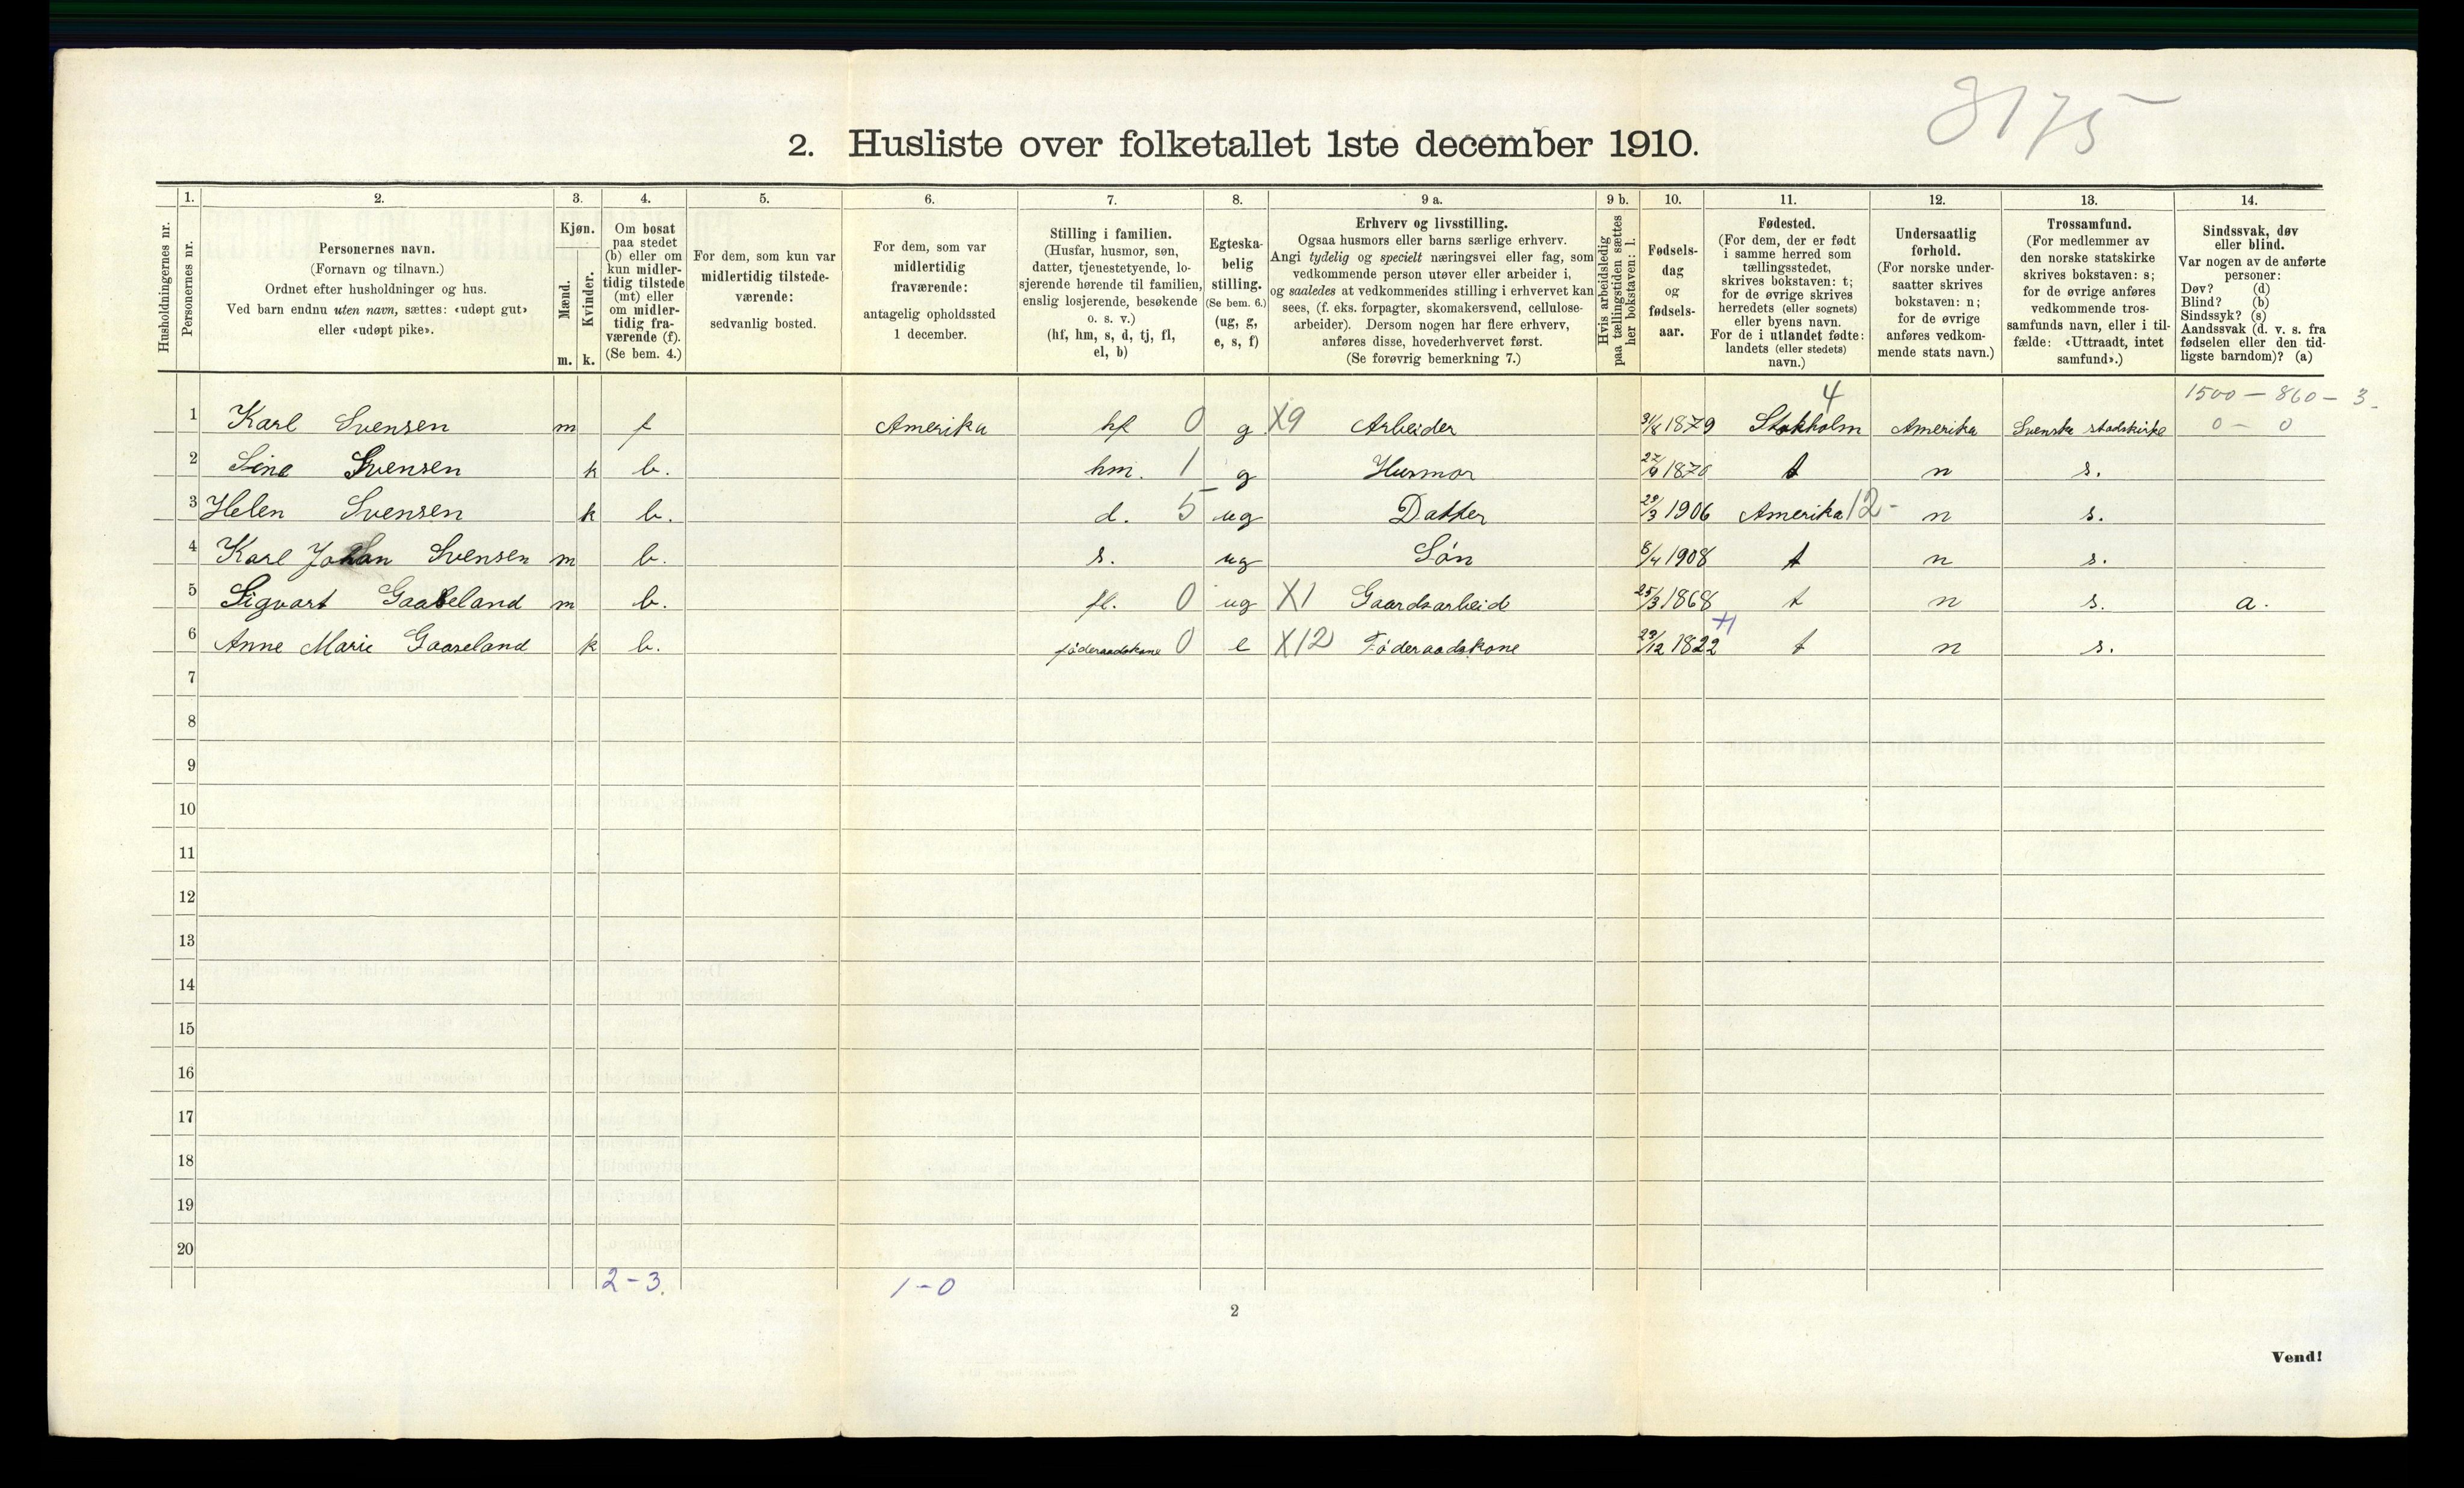 8175
2. Husliste over folketallet 1ste december 1910.
1. 2. 3. 4. 5. 6. 7. 8. 9 a. 9 b. 10. 11. 12. 13. 14.
Husholdningernes nr.
Personernes nr.
Personernes navn.
(Fornavn og tilnavn.)
Ordnet efter husholdninger og hus.
Ved barn endnu uten navn, sættes: «udøpt gut»
eller «udøpt pike».
Kjøn.
Mænd.
Kvinder.
m. k.
Om bosat
paa stedet
(b) eller om
kun midler-
tidig tilstede
(mt) eller
om midler-
tidig fra-
værende (f).
(Se bem. 4.)
For dem, som kun var
midlertidig tilstede-
værende:
sedvanlig bosted.
For dem, som var
midlertidig
fraværende:
antagelig opholdssted
1 december.
Stilling i familien.
(Husfar, husmor, søn,
datter, tjenestetyende, lo-
sjerende hørende til familien,
enslig losjerende, besøkende
o. s. v.)
(hf, hm, s, d, tj, fl,
el, b)
Egteska-
belig
stilling.
(Se bem. 6.)
(ug, g,
e, s, f)
Erhverv og livsstilling.
Ogsaa husmors eller barns særlige erhverv.
Angi tydelig og specielt næringsvei eller fag, som
vedkommende person utøver eller arbeider i,
og saaledes at vedkommendes stilling i erhvervet kan
sees, (f. eks. forpagter, skomakersvend, cellulose-
arbeider). Dersom nogen har flere erhverv,
anføres disse, hovederhvervet først.
(Se forøvrig bemerkning 7.)
Hvis arbeidsledig
paa tællingstiden sættes
her bokstaven: l.
Fødsels-
dag
og
fødsels-
aar.
Fødested.
(For dem, der er født
i samme herred som
tællingsstedet,
skrives bokstaven: t;
for de øvrige skrives
herredets (eller sognets)
eller byens navn.
For de i utlandet fødte:
landets (eller stedets)
navn.)
Undersaatlig
forhold.
(For norske under-
saatter skrives
bokstaven: n;
for de øvrige
anføres vedkom-
mende stats navn.)
Trossamfund.
(For medlemmer av
den norske statskirke
skrives bokstaven: s;
for de øvrige anføres
vedkommende tros-
samfunds navn, eller i til-
fælde: «Uttraadt, intet
samfund».)
Sindssvak, døv
eller blind.
Var nogen av de anførte
personer:
Døv? (d)
Blind? (b)
Sindssyk? (s)
Aandssvak (d. v. s. fra
fødselen eller den tid-
ligste barndom)? (a)
4 1500 - 860 - 3.
1 Karl Svensen m f Amerika hf 0 g X9 Arbeider 1879 Stokholm Amerika Svenske stadskirke 0 - 0
2 Sine Svensen k b. hm. 1 g Husmor t n s.
3 Helen Svensen k b. d. 5 ug Datter 29/3 1906 Amerika 12- n s.
4 Karl Johan Svensen m b. s. ug Søn 8/4 1908 t n s.
5 Sigvart Gaaseland m b. fl. 0 ug X1 Gaardsarbeid 25/3 1868 t n s. a.
6 Anne Marie Gaaseland k b. föderaadskone 0 e X12 Föderaadskone 29/12 1822 +1 t n s.
7
8
9
10
11
12
13
14
15
16
17
18
19
20
2-3. 1-0
2
Vend!